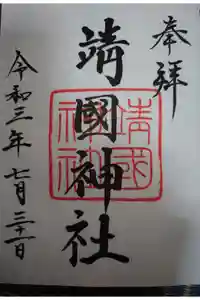 奉拝
靖國神社
靖國
神社
令和三年七月三十一日